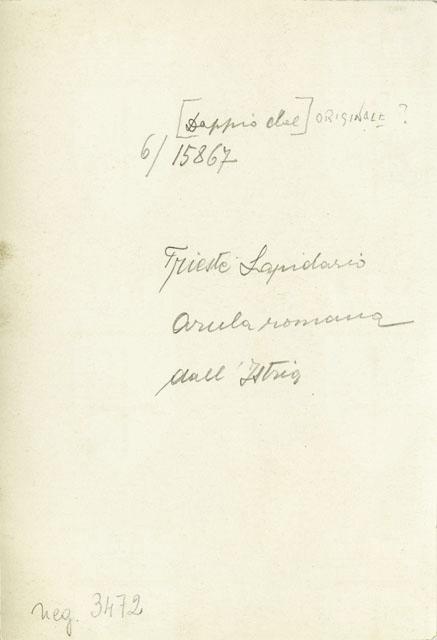 [Doppio del] ORIGINALE ?
6/15867
Trieste Lapidario
Arula romana
dall'Istria
neg. 3472